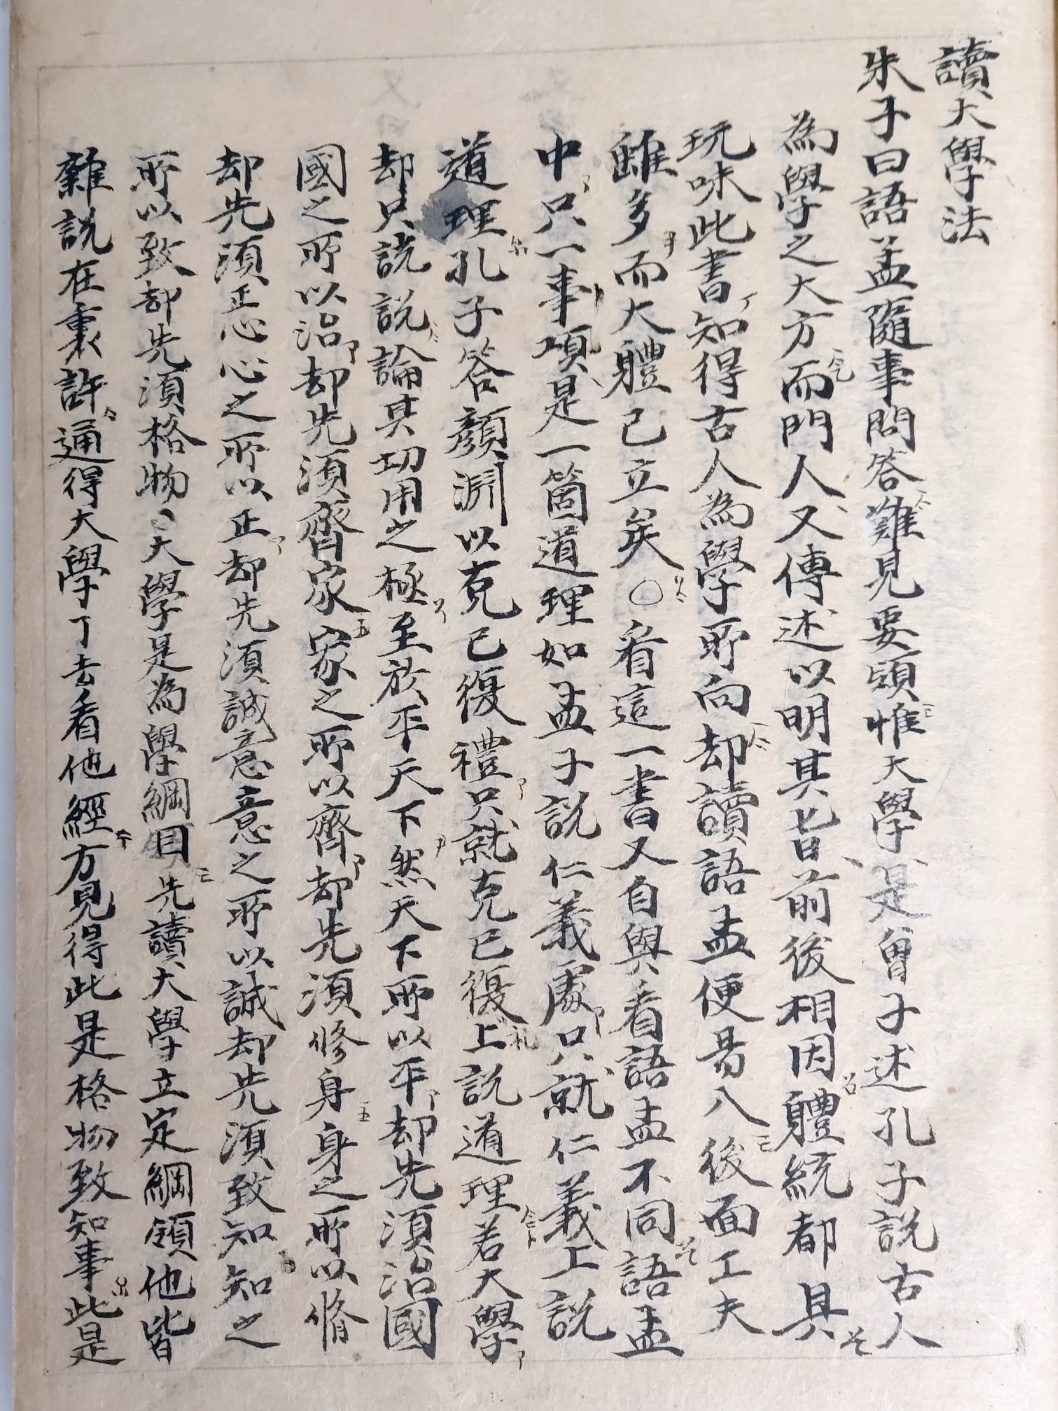 讀大學法
朱子曰語孟隨事問答難見要領惟大學是曾子述孔子說古人
為學之大方而門人又傳述以明其旨前後相因體統都具
玩味此書知得古人為學所向却讀語孟便易入後面工夫
雖多而大體已立矣○看這一書又自與看語孟不同語孟
中只一事項是一箇道理如孟子說仁義處只就仁義上說
道理孔子答顏淵以克己復禮只就克己復礼上說道理若大學
却只說說論其功用之極至於平天下然天下所以平却先須治國
國之所以治却先須齊家家之所以齊却先須修身身之所以脩
却先須正心心之所以正却先須誠意意之所以誠却先須致知知之
所以致却先須格物大學是為學綱目先讀大學立定綱領他皆
雜說在裏許通得大學了去看他經方見得此是格物致知事此是